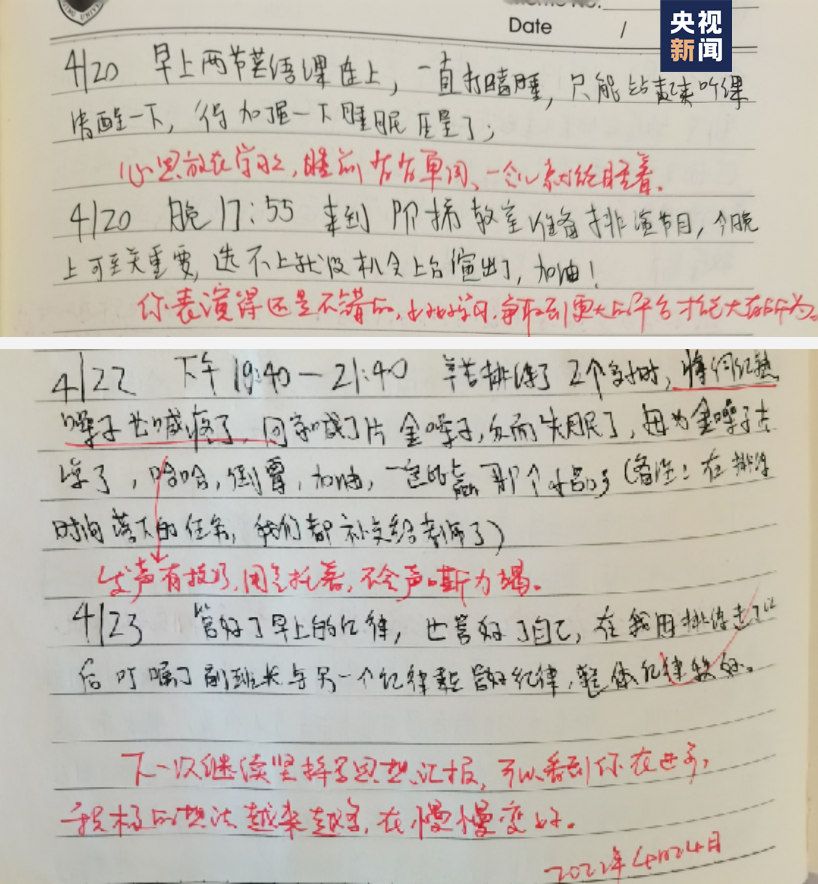 Date /
央视
新闻
4/20 早上两节英语课连上，一直打瞌睡，只能站起来听课
清醒一下，得加强一下睡眠质量了；
心思放在学习上，睡前背背单词、一会儿就能睡着。
4/20 晚17:55 来到阶梯教室准备排演节目，今晚
上可至关重要，选不上就没机会上台演出了，加油！
你表演得还是不错的，好好学习，争取到更大的平台才能大有所为。
4/22 下午19:40—21:40 辛苦排练了2个多小时，
嗓子也喊疼了，回家喊了片金嗓子，反而失眠了，因为金嗓子太
了，哈哈，倒霉，加油，一定能赢那个（备注：在排练
时间落下的任务，我们都补交给老师了）
发声有技巧，用气托着，不会声嘶力竭。
4/23 管好了早上的纪律，也管好了自己，在我因排练走了以
后叮嘱了副班长与另一个纪律委员管好纪律，整体纪律较好。
下一次继续坚持写思想汇报，可以看到你在进步，
积极的想法越来越多，在慢慢变好。
2022年4月24日